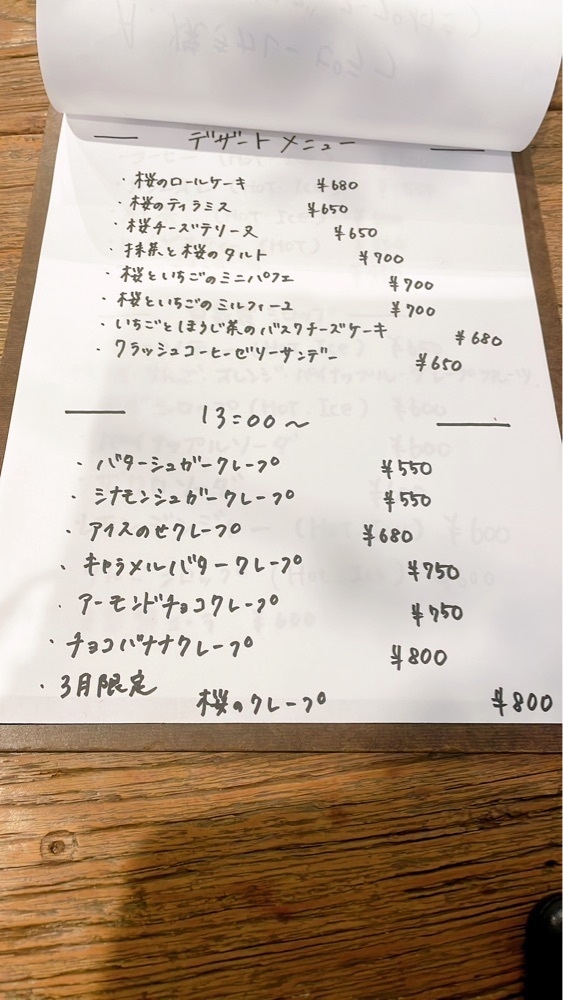 デザートメニュー
・桜のロールケーキ ¥680
・桜のティラミス ¥650
・桜チーズテリーヌ ¥650
・抹茶と桜のタルト ¥700
・桜といちごのミニパフェ ¥700
・桜といちごのミルフィーユ ¥700
・いちごとほうじ茶のバスクチーズケーキ ¥680
・クラッシュコーヒーゼリーサンデー ¥650
13:00〜
・バターシュガークレープ ¥550
・シナモンシュガークレープ ¥550
・アイスのせクレープ ¥680
・キャラメルバタークレープ ¥750
・アーモンドチョコクレープ ¥750
・チョコバナナクレープ ¥800
・3月限定
桜のクレープ ¥800